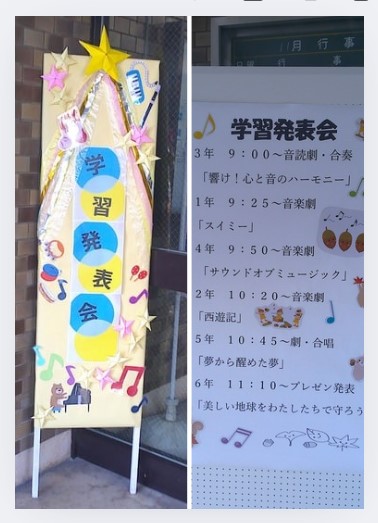 学習発表会
11月行事
学習発表会
3年 9:00~音読劇・合奏
「響け!心と音のハーモニー」
1年 9:25~音楽劇
「スイミー」
4年 9:50~音楽劇
「サウンドオブミュージック」
2年 10:20~音楽劇
「西遊記」
5年 10:45~劇・合唱
「夢から醒めた夢」
6年 11:10~プレゼン発表
「美しい地球をわたしたちで守ろう